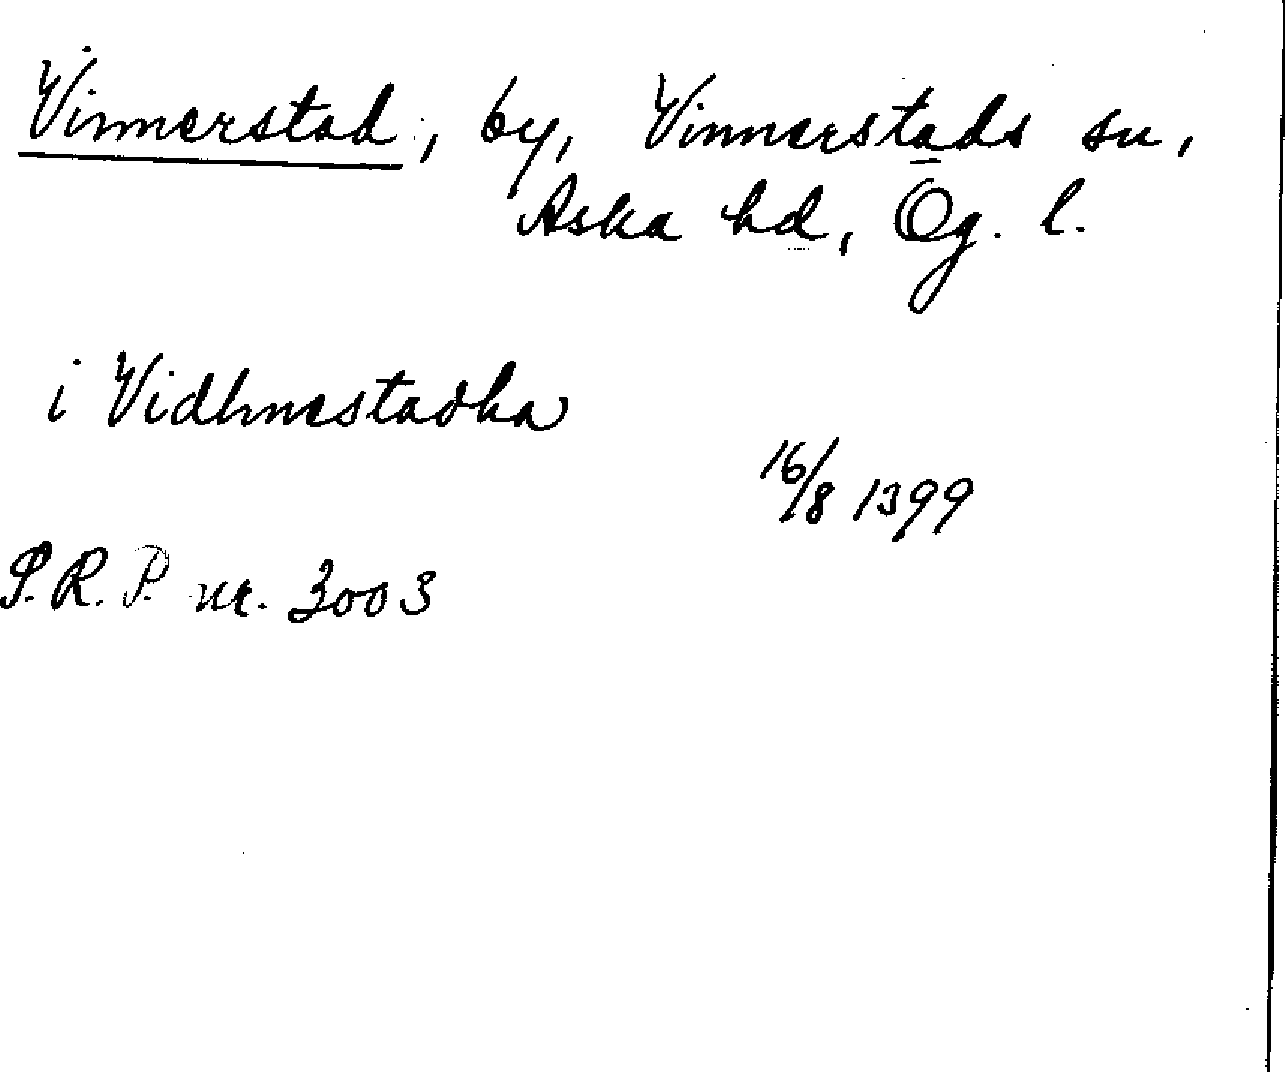 Vinnerstad, by, Vinnerstads sn,
Aska hd, Ög. l.
i Vidhnestadha
16/8 1399
S.R.P. nr. 3003